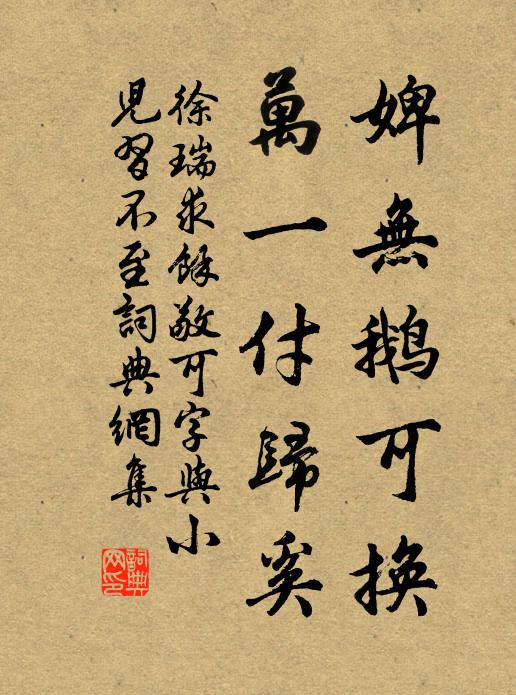 婢無鵝可換
萬一付歸奚
徐瑞求餘敬可字與小
兒習不至詞典網集
詞典
网印